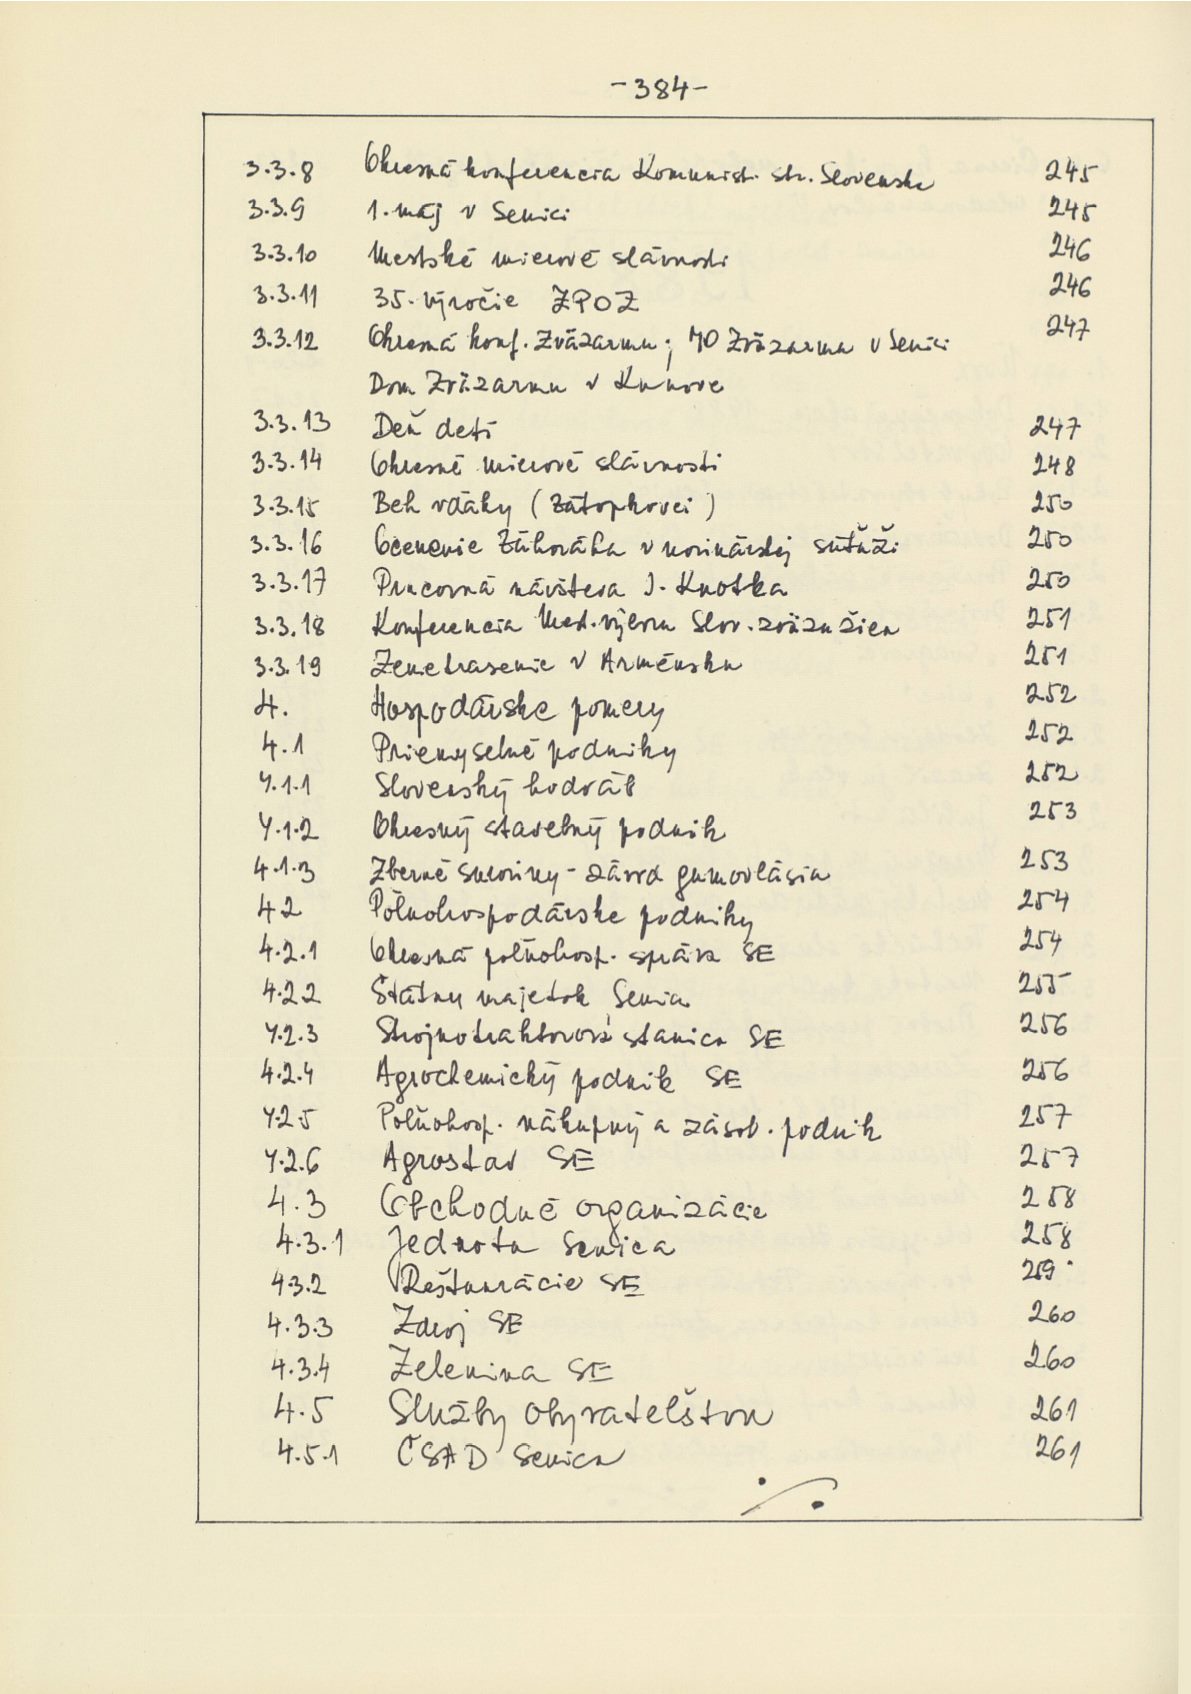 -384-
3.3.8 Okresná konferencia Komunist. str. Slovenska 245
3.3.9 1. máj v Senici 245
3.3.10 Mestské mierové slávnosti 246
3.3.11 35. výročie ZPOZ 246
3.3.12 Okresná konf. Zväzarmu; MO Zväzarmu v Senici 247
Dom Zväzarmu v Kunove
3.3.13 Deň detí 247
3.3.14 Okresné mierové slávnosti 248
3.3.15 Beh vďaky (Zátopkovci) 250
3.3.16 Ocenenie Záhoráka v novinárskej súťaži 250
3.3.17 Pracovná návšteva I. Knotka 250
3.3.18 Konferencia Med. výboru Slov. zväzu žien 251
3.3.19 Zemetrasenie v Arménsku 251
4. Hospodárske pomery 252
4.1 Priemyselné podniky 252
4.1.1 Slovenský hodváb 252
4.1.2 Okresný stavebný podnik 253
4.1.3 Zberné suroviny - závod gumovlásia 253
4.2 Poľnohospodárske podniky 254
4.2.1 Okresná poľnohosp. správa SE 254
4.2.2 Štátny majetok Senica 255
4.2.3 Strojnotraktorová stanica SE 256
4.2.4 Agrochemický podnik SE 256
4.2.5 Poľnohosp. nákupný a zásob. podnik 257
4.2.6 Agrostav SE 257
4.3 Obchodné organizácie 258
4.3.1 Jednota Senica 258
4.3.2 Reštaurácie SE 259
4.3.3 Zdroj SE 260
4.3.4 Zelenina SE 260
4.5 Služby obyvateľstvu 261
4.5.1 ČSAD Senica 261
./.